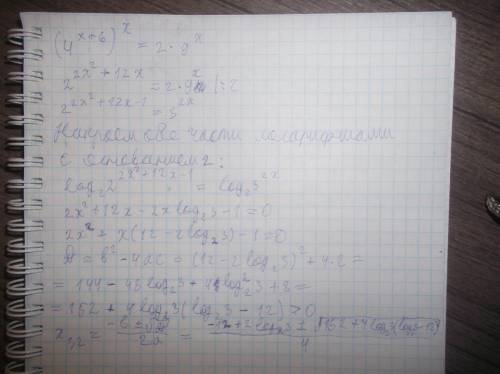 (4^{x+6})^x = 2·9^x
2^{2x²+12x} = 2·9^x |:2
2^{2x²+12x-1} = 3^{2x}
обе части логарифмами
с основанием 2:
log₂2^{2x²+12x-1} = log₂3^{2x}
2x²+12x-2xlog₂3-1=0
2x²+x(12-2log₂3)-1=0
D=b²-4ac=(12-2log₂3)²+4·2=
=144-48log₂3+4log₂²3+8=
=152+4log₂3(log₂3-12)>0